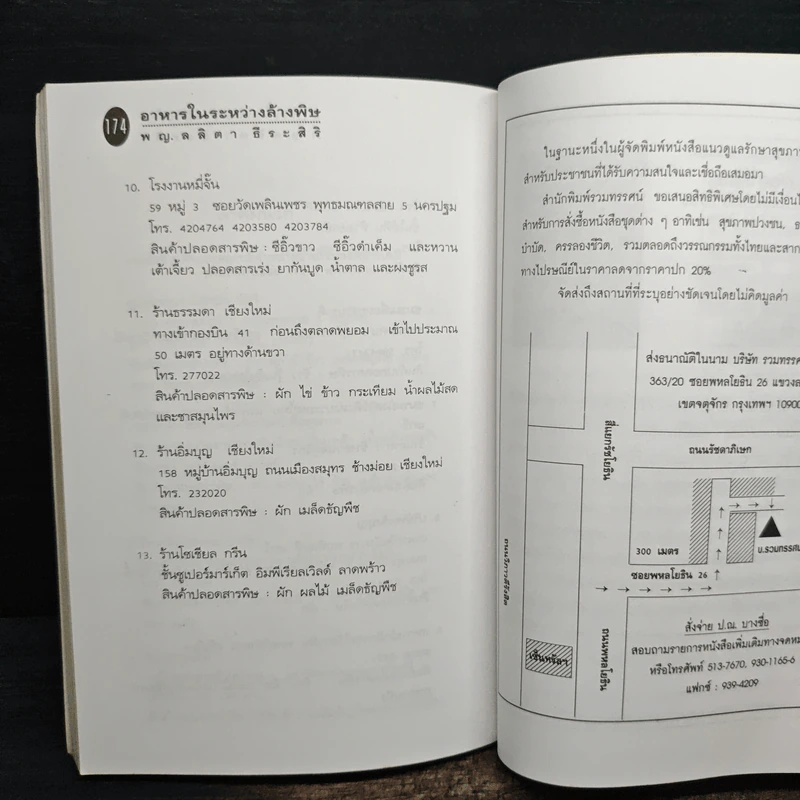 174
อาหารในระหว่างล้างพิษ
พญ. ลลิตา ธีระสิริ
10. โรงงานหมี่จั๊น
59 หมู่ 3 ซอยวัดเพลินเพชร พุทธมณฑลสาย 5 นครปฐม
โทร. 4204764 4203580 4203784
สินค้าปลอดสารพิษ : ซีอิ๊วขาว ซีอิ๊วดำเค็ม และหวาน
เต้าเจี้ยว ปลอดสารเร่ง ยากันบูด น้ำตาล และผงชูรส
11. ร้านธรรมดา เชียงใหม่
ทางเข้ากองบิน 41 ก่อนถึงตลาดพยอม เข้าไปประมาณ
50 เมตร อยู่ทางด้านขวา
โทร. 277022
สินค้าปลอดสารพิษ : ผัก ไข่ ข้าว กระเทียม น้ำผลไม้สด
และชาสมุนไพร
12. ร้านอิ่มบุญ เชียงใหม่
158 หมู่บ้านอิ่มบุญ ถนนเมืองสมุทร ช้างม่อย เชียงใหม่
โทร. 232020
สินค้าปลอดสารพิษ : ผัก เมล็ดธัญพืช
13. ร้านโซเชียล กรีน
ชั้นซูเปอร์มาร์เก็ต อิมพีเรียลเวิลด์ ลาดพร้าว
สินค้าปลอดสารพิษ : ผัก ผลไม้ เมล็ดธัญพืช
ในฐานะหนึ่งในผู้จัดพิมพ์หนังสือแนวดูแลรักษาสุขภา
สำหรับประชาชนที่ได้รับความสนใจและเชื่อถือเสมอมา
สำนักพิมพ์รวมทรรศน์ ขอเสนอสิทธิพิเศษโดยไม่มีเงื่อนไ
สำหรับการสั่งซื้อหนังสือชุดต่าง ๆ อาทิเช่น สุขภาพปวงชน,
บำบัด, ครรลองชีวิต, รวมตลอดถึงวรรณกรรมทั้งไทยและสาก
ทางไปรษณีย์ในราคาลดจากราคาปก 20%
จัดส่งถึงสถานที่ที่ระบุอย่างชัดเจนโดยไม่คิดมูลค่า
ส่งธนาณัติในนาม บริษัท รวมทรรศ
363/20 ซอยพหลโยธิน 26 แขวงล
เขตจตุจักร กรุงเทพฯ 10900
สี่แยกรัชโยธิน
ถนนรัชดาภิเษก
300 เมตร
บ.รวมทรรศน
ซอยพหลโยธิน 26
ถนนวิภาวดีรังสิต
เซ็นทรัลฯ
ถนนพหลโยธิน
สั่งจ่าย ป.ณ. บางซื่อ
สอบถามรายการหนังสือเพิ่มเติมทางจดหม
หรือโทรศัพท์ 513-7670, 930-1165-6
แฟกซ์ : 939-4209